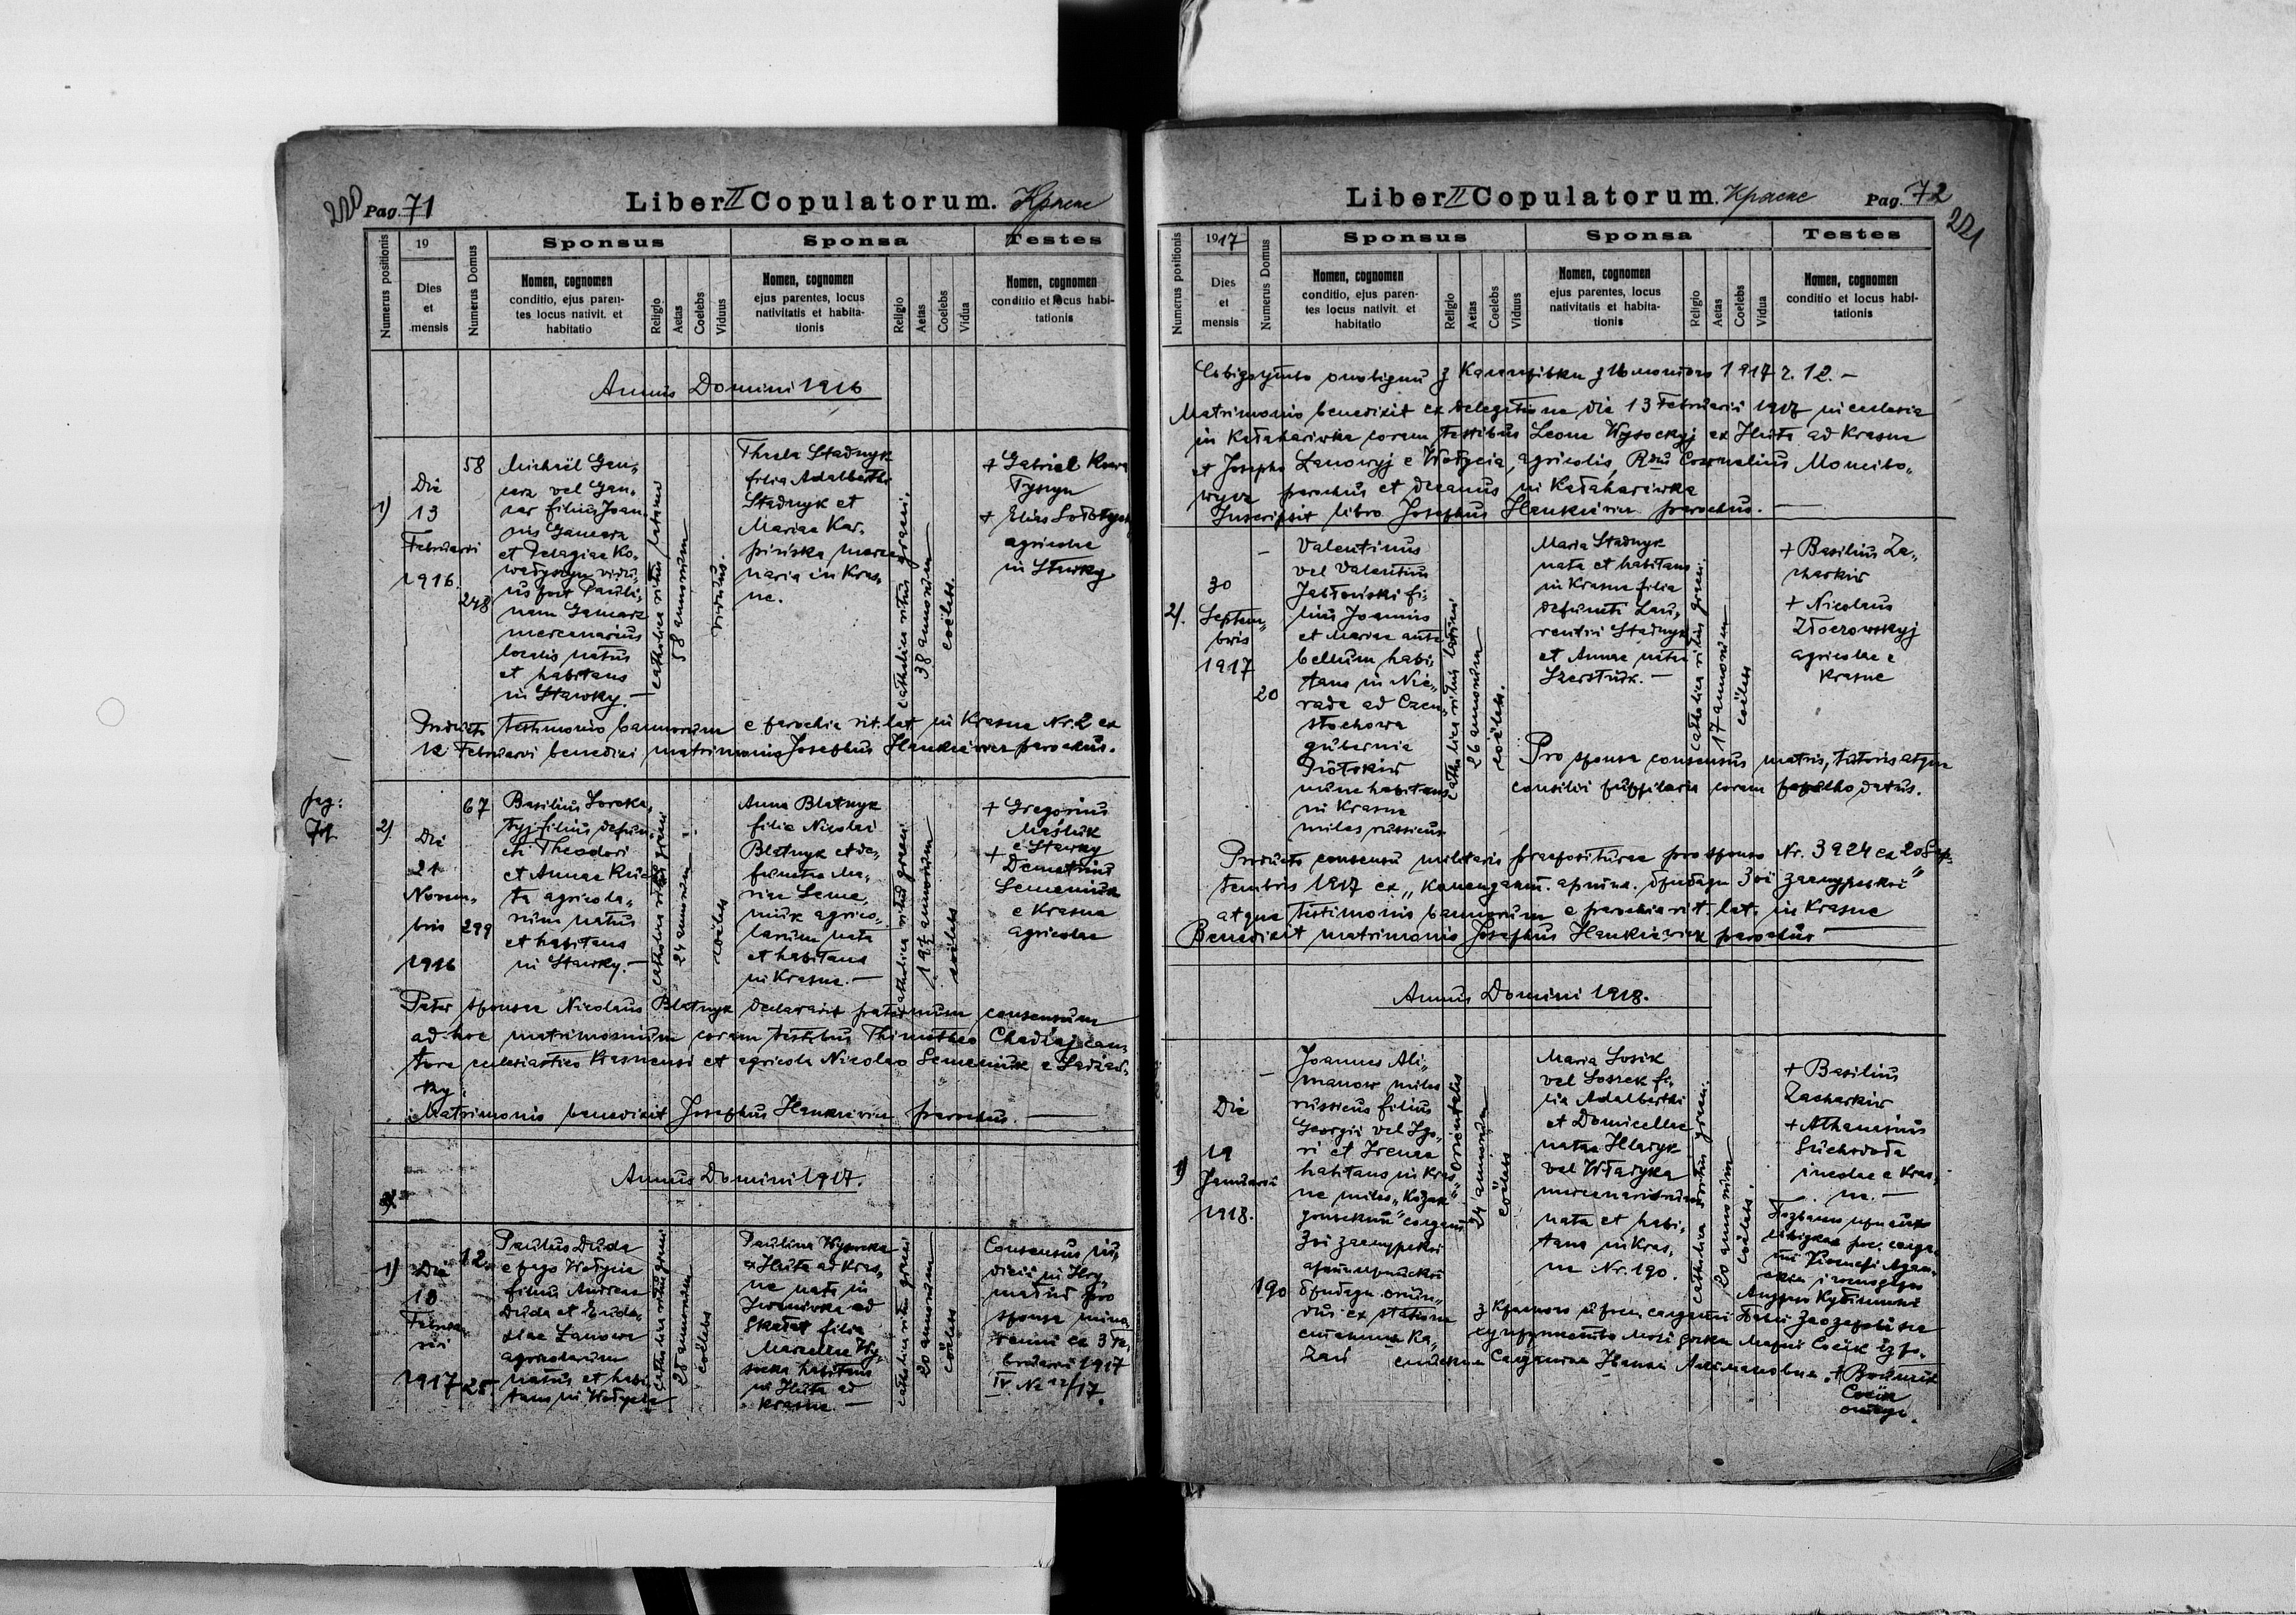 220 Pag. 71
Liber II Copulatorum. Красне
Numerus positionis
19
Dies
et
mensis
Numerus Domus
Sponsus
Nomen, cognomen
conditio, ejus paren-
tes locus nativit. et
habitatio
Religio
Aetas
Coelebs
Viduus
Sponsa
Nomen, cognomen
ejus parentes, locus
nativitatis et habita-
tionis
Religio
Aetas
Coelebs
Vidua
Testes
Nomen, cognomen
conditio et locus habi-
tationis
Annus Domini 1916
1)
Die
13
Februarii
1916.
58
248
Michaël Gan„
carz vel Gan„
car filius Joan„
nis Gancarz
et Pelagiae Ko„
wadyczyn vidu„
us post Pauli„
nam Gancarz
mercenarius
localis natus
et habitans
in Stawky. —
catholica ritus latini
58 annorum
viduus.
Thecla Stadnyk
filia Adalberti
Stadnyk et
Mariae Kar„
pinska merce„
naria in Kras„
ne.
catholica ritus graeci.
38 annorum
coëlebs.
+ Gabriel
Tyszyn
+ Elias
agricolae
in Stawky
Producto testimonio bannorum e parochia rit. lat. in Krasne Nr. 2 ex
12 Februarii benedixi matrimonio Josephus Hankiewicz parochus.
pag:
2)
Die
21
Novem„
bris
1916
67
299
Basilius Soroka„
tyj filius defun„
cti Theodori
et Annae
agricola„
rum natus
et habitans
in Stawky. —
catholica ritus graeci
24 annorum
coëlebs
Anna Blatnyk
filia Nicolai
Blatnyk et de„
functae Ma„
riae Seme„
niuk agrico„
larum nata
et habitans
in Krasne. —
catholica ritus graeci
19 annorum
coëlebs
+ Gregorius
Maśluk
e Stawky
+ Demetrius
Semeniuk
e Krasne
agricolae
Pater sponsae Nicolaus Blatnyk declaravit paternum consensum
ad hoc matrimonium coram testibus Thimotheo Chadzaj can„
tore ecclesiastico Krasnensi et agricola Nicolao Semeniuk e Sadzaw„
ky.
Matrimonio benedixit Josephus Hankiewicz parochus. —
Annus Domini 1917.
1)
Die
13
Februa„
rii
1917
12.
25.
Paulus Duda
e pago Wołycia
filius Andreae
Duda et Eudo„
xiae Lanowa
agricolarum
natus et habi„
tans in Wołycia
catholica ritus graeci
28 annorum
coëlebs
Paulina Wysocka
ex Hłuta ad Kras„
ne nata in
Iwaniwka ad
Skałat filia
Marcellae Wy„
socka habitans
in Hłuta ad
Krasne. —
catholica ritus graeci
20 annorum
coëlebs
Consensus iu„
dicii in Hry„
małow pro
sponsa mino„
renni ex 3 Fe„
bruarii 1917
IV No 12/17.
Liber II Copulatorum. Красне
Pag. 72
221
Numerus positionis
1917
Dies
et
mensis
Numerus Domus
Sponsus
Nomen, cognomen
conditio, ejus paren-
tes locus nativit. et
habitatio
Religio
Aetas
Coelebs
Viduus
Sponsa
Nomen, cognomen
ejus parentes, locus
nativitatis et habita-
tionis
Religio
Aetas
Coelebs
Vidua
Testes
Nomen, cognomen
conditio et locus habi-
tationis
Свідоцтво оповідий з Калагарівки з 16 лютого 1917 ч. 12. —
Matrimonio benedixit ex delegatione die 13 Februarii 1917 in ecclesia
in Kałahariwka coram testibus Leone Wysockyj ex Hłuta ad Krasne
et Josepho Lanowyj e Wołycia, agricolis, Rdus Cornelius Moncibo„
wycz parochus et decanus in Kałahariwka
Inscripsit libro Josephus Hankiewicz parochus. —
2).
30
Septem„
bris
1917
—
20
Valentinus
vel Valentius
Jabłoński fi„
lius Joannis
et Mariae ante
bellum habi„
tans in Nie„
rada ad Czen„
stochowa
gubernia
Piotrkiw
nunc habitans
in Krasne
miles russicus
catholica ritus latini
26 annorum
coëlebs.
Maria Stadnyk
nata et habitans
in Krasne filia
defuncti Lau„
rentii Stadnyk
et Annae natae
Szerstiuk. —
catholica ritus graeci.
17 annorum
coëlebs
+ Basilius Za„
charkiw
+ Nicolaus
Złoczowskyj
agricolae e
Krasne
Pro sponsa consensus matris, tutoris atque
consilii pupilaris coram parocho datus.
Producto consensu militaris praepositurae pro sponso Nr. 3924 ex 20 Sep„
tembris 1917 ex „
atque testimonio bannorum e parochia rit. lat. in Krasne
Benedixit matrimonio Josephus Hankiewicz parochus —
Annus Domini 1918.
1)
Die
19
Januarii
1918.
—
190
Joannes Ali„
manow miles
russicus filius
Georgii vel Igo„
ri et Irenae
habitans in Kras„
ne miles „Козак
3oї заамурскої
артилерийскої
бригади
dus ex statione
станиця Ка„
orientalis
24 annorum
coëlebs
Maria Sosik
vel Soszek fi„
lia Adalberti
et Domicellae
natae Hładyk
vel Władyka
mercenariorum
nata et habi„
tans in Kras„
ne Nr. 190.
catholica ritus graeci.
20 annorum
coëlebs.
+ Basilius
Zacharkiw
+ Athanasius
Suchowoda
incolae e Kras„
ne. —
з Красного
+ Войтіх
Сосїк
отець.